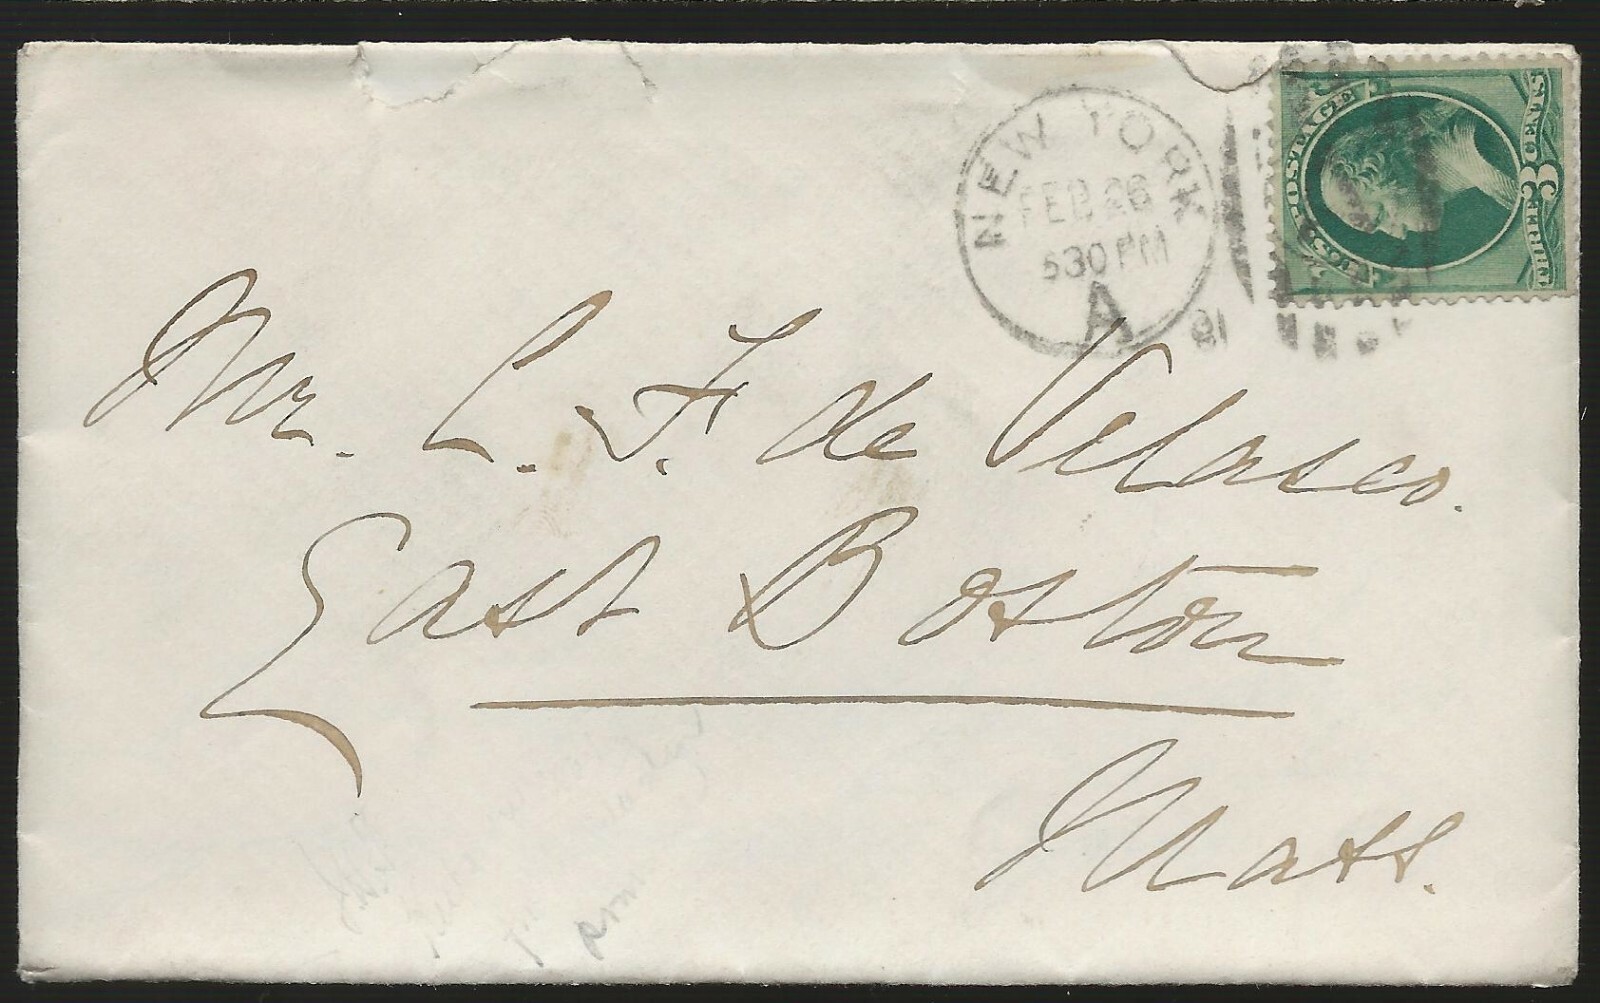 NEW YORK
FEB 26
530 PM
A
81
U.S. POSTAGE
THREE 3 CENTS
Mr. L. F. de Velasco.
East Boston
Mass.